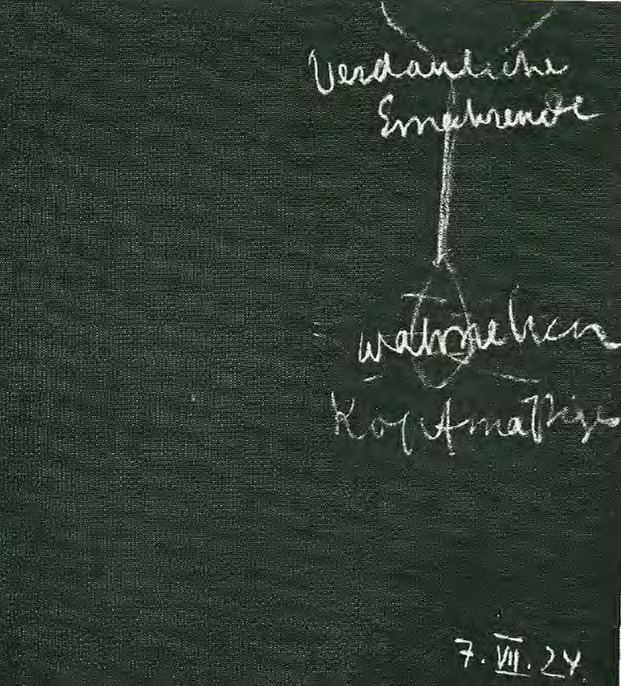 Verdauliche
Ernährende
wahrnehmen
Kopfmäßige
7. VII. 24.